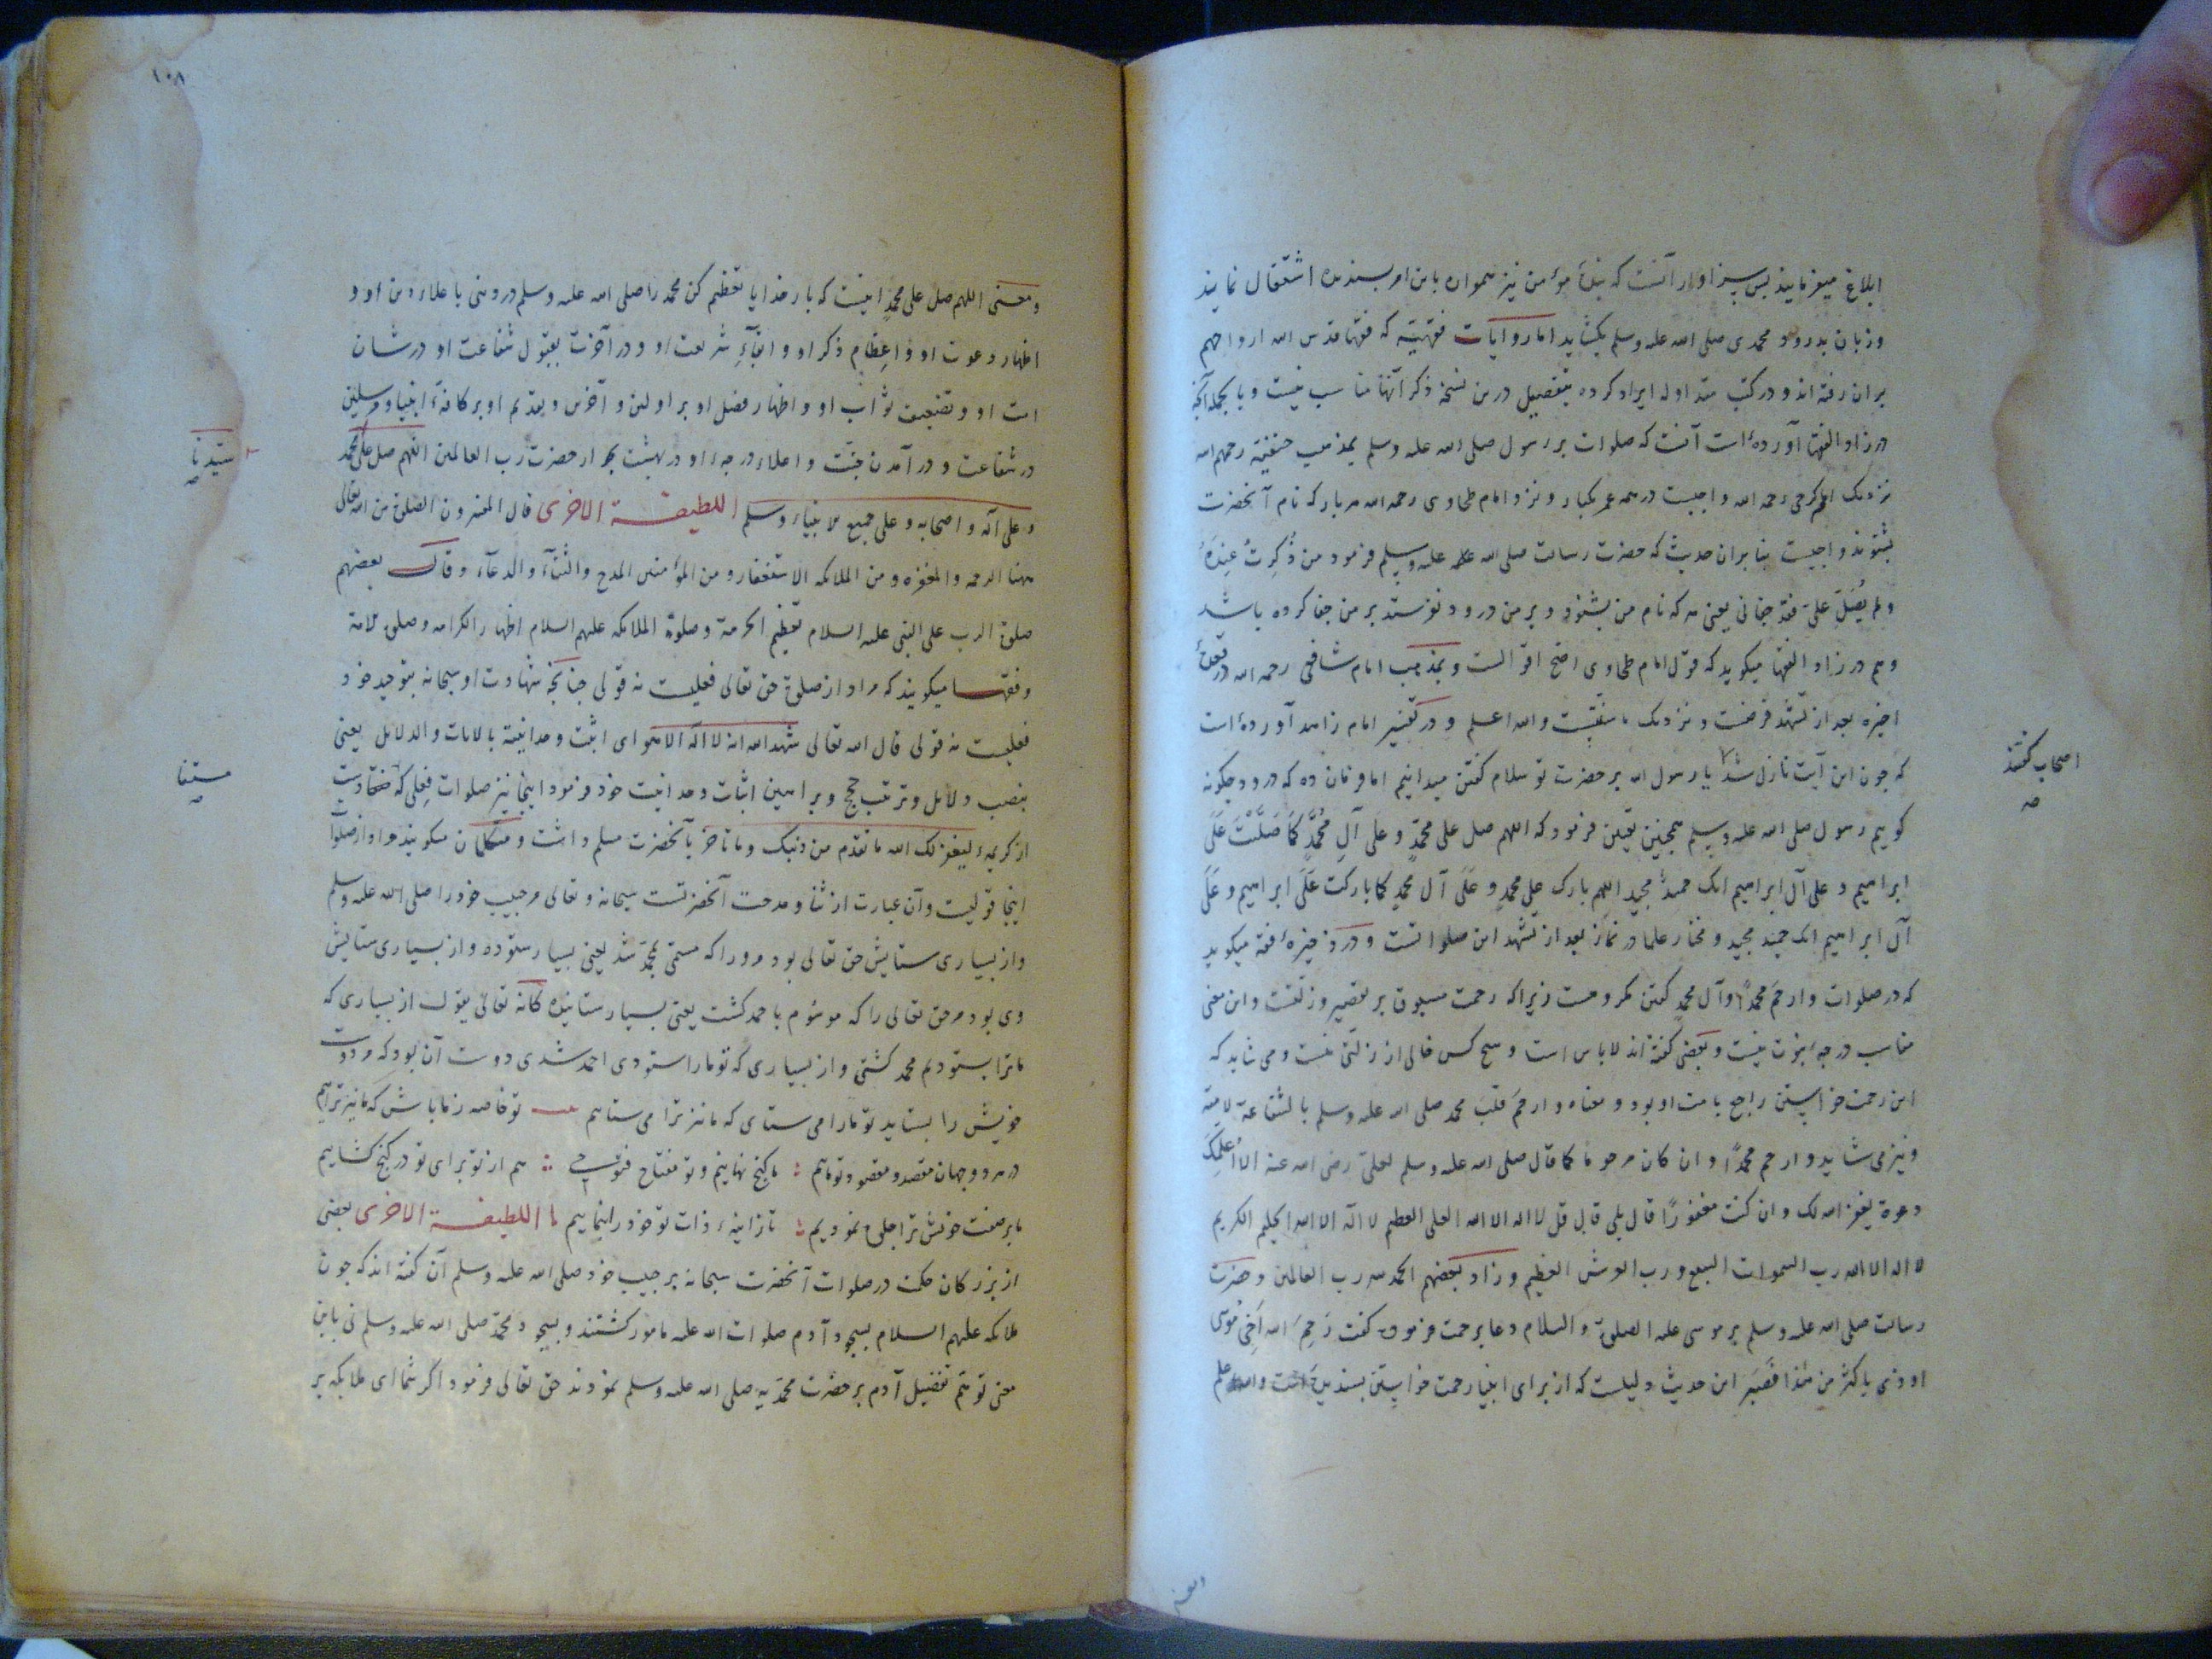 ابلاغ میفرمایند پس سزاوار آنست که بندهٔ مؤمن نیز همواره باین امر پسندیده اشتغال نماید
و زبان بدرود محمدی صلی الله علیه وسلم بکشاید اما روایات فقهیّه که فقها قدس الله ارواحهم
بران رفته اند و در کتب متداوله ایراد کرده بتفصیل درین نسخه ذکر آنها مناسب نیست و بالجمله آنچه
در زاد الفقها آورده است آنست که صلوات بر رسول صلی الله علیه وسلم بمذهب حنفیّه رحمهم الله
نزدیک کرخی رحمه الله واجبست در همه عمر یکبار و نزد امام طحاوی رحمه الله هر بار که نام آنحضرت
بشنوند واجبست بنابران حدیث که حضرت رسالت صلی الله علیه وسلم فرمود من ذُکِرتُ عِندَهُ
ولم یُصَلِّ عَلیَّ فقد جفانی یعنی هر که نام من بشنود و بر من درود نفرستد بر من جفا کرده باشد
و هم در زاد الفقها میکوید که قول امام طحاوی اصح اقوالست و بمذهب امام شافعی رحمه الله در قعدهٔ
اخیره بعد از تشهد فرضست و نزدیک ما سنّتست والله اعلم و در تفسیر امام زاهد آورده است
که چون این آیت نازل شد یا رسول الله بر حضرت تو سلام کفتن میدانیم اما فرمان ده که درود چکونه
اصحاب کفتند
صح
کوییم رسول صلی الله علیه وسلم همچنین تعیین فرمود که اللهم صل علی محمدٍ و علی آلِ مُحمَّدٍ کمَا صَلَّیْتَ عَلَی
ابراهیم و علی آل ابراهیم انک حمیدٌ مجید اللهم بارک علی محمدٍ و عَلَی آل محمدٍ کما بارکت عَلَی ابراهیم و عَلَی
آل ابراهیم انک حمید مجید و مختار علما در نماز بعد از تشهد این صلواتست و در ذخیرهٔ فقه میکوید
که در صلوات وارحَم محمدًا وآل محمدٍ کفتن مکروهست زیرا که رحمت مسبوق بر تقصیر و زلتست و این معنی
مناسب درجهٔ نبوت نیست و بعضی کفته اند لاباس است و هیچ کس خالی از زلتی نیست و می شاید که
این رحمت خواستن راجع بامت او بود و معناه وارحَم قلبَ محمد صلی الله علیه وسلم بالشفاعة لامته
و نیز می شاید وارحم محمدًا وان کان مرحوما کما قال صلی الله علیه وسلم لعلیّ رضی الله عنه الا اُعلِمُکَ
دعوة یغفر الله لک وان کنت مغفورًا قال بلی قال قل لا اله الا الله العلی العظیم لا اله الا الله الحلیم الکریم
لا اله الا الله رب السموات السبع ورب العرش العظیم و زاد بعضهم الحمد لله رب العالمین و حضرت
رسالت صلی الله علیه وسلم بر موسی علیه الصلوة والسلام دعا برحمت فرمود کفت رَحِمَ الله اَخِی مُوسَی
اوذی باکثر من هذا فصَبَر این حدیث دلیلست که از برای انبیا رحمت خواستن پسندیده است والله اعلم
١٠٨
و معنی اللهم صل علی محمدٍ اینست که بار خدایا تعظیم کن محمد را صلی الله علیه وسلم در دنیی باعلاء دین او و
اظهار دعوت او و اعظام ذکر او و ابقآءِ شریعت او و در آخرت بقبول شفاعت او در شان
امت او و تضعیف ثواب او و اظهار فضل او بر اولین و آخرین و تقدیم او بر کافهٔ انبیا و مرسلین
در شفاعت و در آمدن جنّت و اعلاء درجهٔ او در بهشت از حضرت رب العالمین اللهم صل علی محمد
سیّدنا
صح
و علی آله واصحابه وعلی جمیع الانبیاء وسلم اللطیفــة الاخری قال المفسرون الصلوة من الله تعالی
ههنا الرحمه والمغفره ومن الملائکه الاستغفار ومن المؤمنین المدح والثنآء والدعآء وقال بعضهم
صلوة الرب علی النبی علیه السلام تعظیم الحرمة وصلوة الملائکه علیهم السلام اظهار الکرامه وصلوة الامة
و فقها میکویند که مراد از صلوة حق تعالی فعلیست نه قولی چنانچه شهادت او سبحانه بتوحید خود
فعلیست نه قولی قال الله تعالی شهد الله انه لا اله الا هو ای اثبت وحدانیته بالایات والدلایل یعنی
بنصب دلایل و ترتیب حجج و براهین اثبات وحدانیت خود فرمود اینجا نیز صلوات فِعلی که
مستفا
صح
از کریمهٔ لیغفر لک الله ما تقدم من ذنبک وما تاخر بآنحضرت مسلم داشت و متکلمان میکویند مراد از صلوات
اینجا قولیست و آن عبارت از ثنا و مدحت آنحضرتست سبحانه و تعالی مر حبیب خود را صلی الله علیه وسلم
و از بسیاری ستایش حق تعالی بود مر ورا که مسمّی بمحمد شد یعنی بسیار ستوده و از بسیاری ستایش
وی بود مر حق تعالی را که موسُوم باحمد کشت یعنی بسیار ستاینده کانه تعالی یقول از بسیاری که
ما ترا بستودیم محمد کشتی و از بسیاری که تو ما را ستودی احمد شدی دوست آن بود که مر دوست
خویش را بستاید تو ما را می ستای که ما نیز ترا می ستاییم تو خاصه ز ما باش که ما نیز تراییم
در هر دو جهان مقصد و مقصود تو ماییم ما کنج نهانیم و تو مفتاح فتوحی هم از تو برای تو در کنج کشاییم
ما بر صفت خویش ترا جلوه نمودیم تا زاینهٔ ذات تو خود را بنماییم اللطیفــة الاخری بعضی
از بزرکان حکمت در صلوات آنحضرت سبحانه بر حبیب خود صلی الله علیه وسلم آن کفته اند که چون
ملائکه علیهم السلام بسجود آدم صلوات الله علیه مامور کشتند و بسجود محمد صلی الله علیه وسلم نی باین
معنی توهّم تفضیل آدم بر حضرت محمدیه صلی الله علیه وسلم نمودند حق تعالی فرمود اگر شما ای ملایکه بر